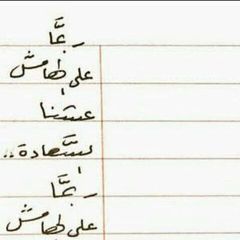 ربمَّا
على هامش
عشنا
بسَّعادة ،،
ربمَّا
على هامش